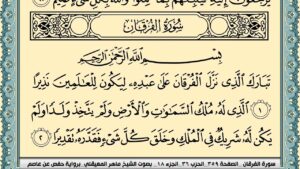 يُرْجَعُونَ إِلَيْهِ فَيُنَبِّئُهُم بِمَا عَمِلُوا۟ وَٱللَّهُ بِكُلِّ شَىْءٍ عَلِيمٌ
سُورَةُ الفُرْقَانِ
بِسْمِ ٱللَّهِ ٱلرَّحْمَٰنِ ٱلرَّحِيمِ
تَبَارَكَ ٱلَّذِى نَزَّلَ ٱلْفُرْقَانَ عَلَىٰ عَبْدِهِۦ لِيَكُونَ لِلْعَٰلَمِينَ نَذِيرًا
١ ٱلَّذِى لَهُۥ مُلْكُ ٱلسَّمَٰوَٰتِ وَٱلْأَرْضِ وَلَمْ يَتَّخِذْ وَلَدًا وَلَمْ
يَكُن لَّهُۥ شَرِيكٌ فِى ٱلْمُلْكِ وَخَلَقَ كُلَّ شَىْءٍ فَقَدَّرَهُۥ تَقْدِيرًا ٢
سورة الفرقان الصفحة ٣٥٩ الحزب ٣٦ الجزء ١٨ بصوت الشيخ ماهر المعيقلي برواية حفص عن عاصم